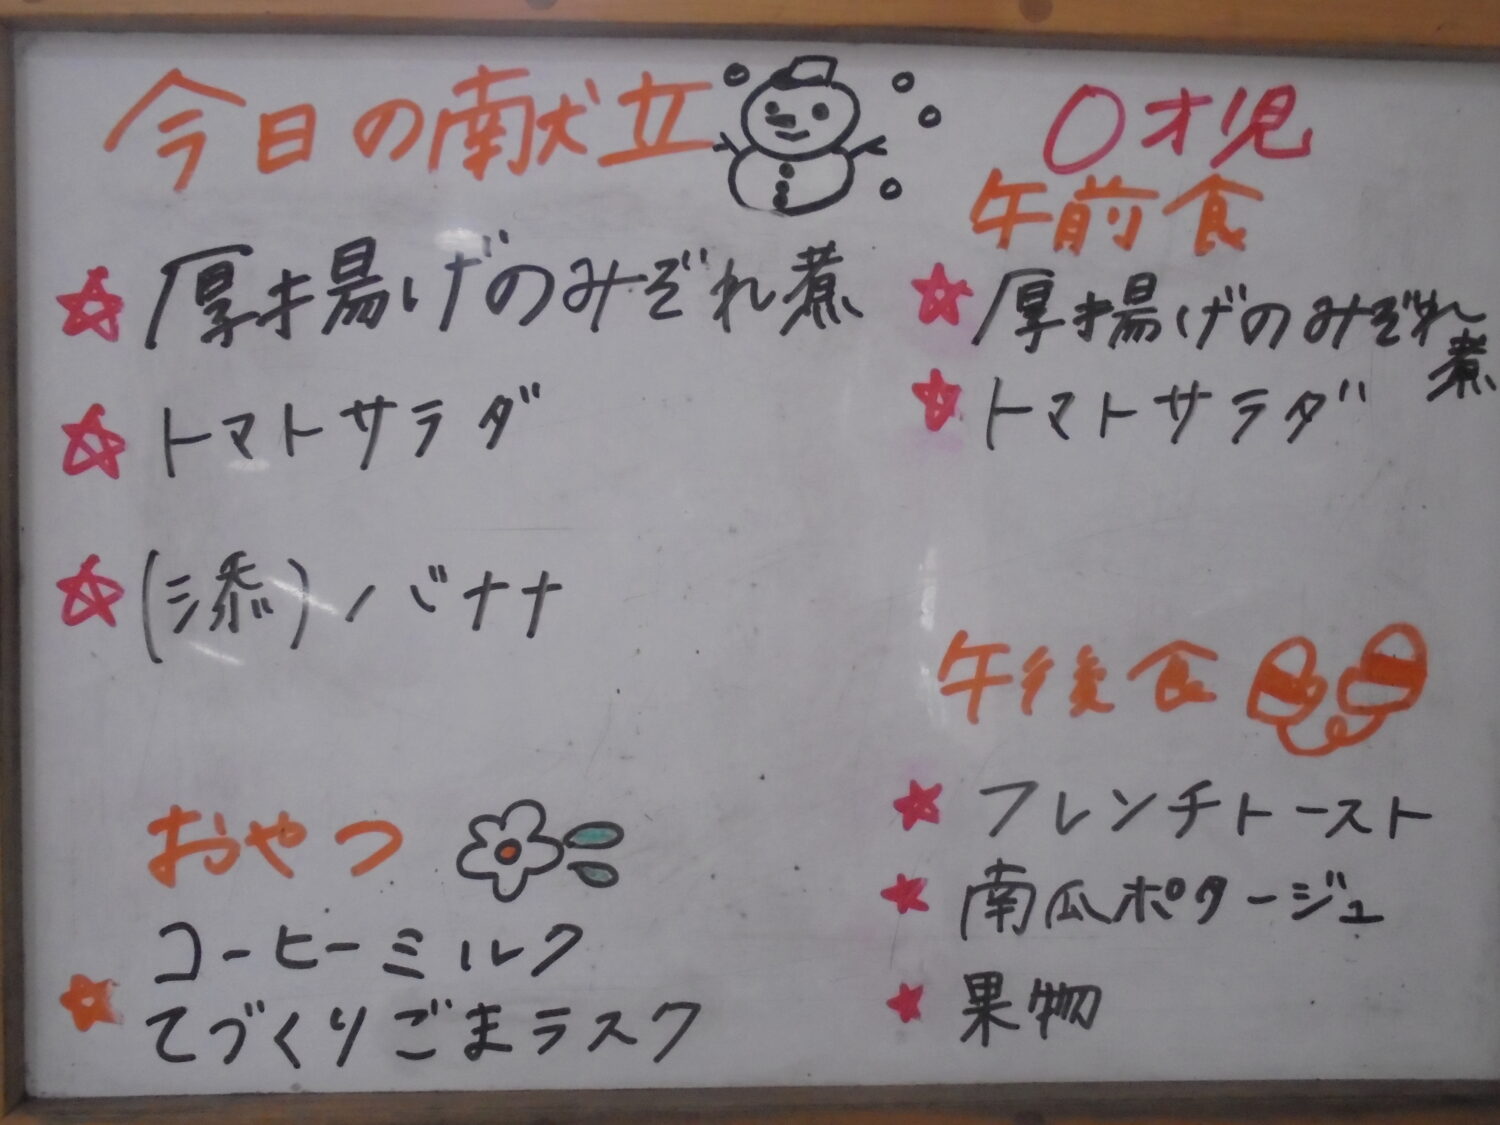 今日の献立
☆ 厚揚げのみぞれ煮
☆ トマトサラダ
☆ (添) バナナ
おやつ
コーヒーミルク
☆ てづくりごまラスク
0才児
午前食
☆ 厚揚げのみぞれ煮
☆ トマトサラダ
午後食
★ フレンチトースト
★ 南瓜ポタージュ
★ 果物